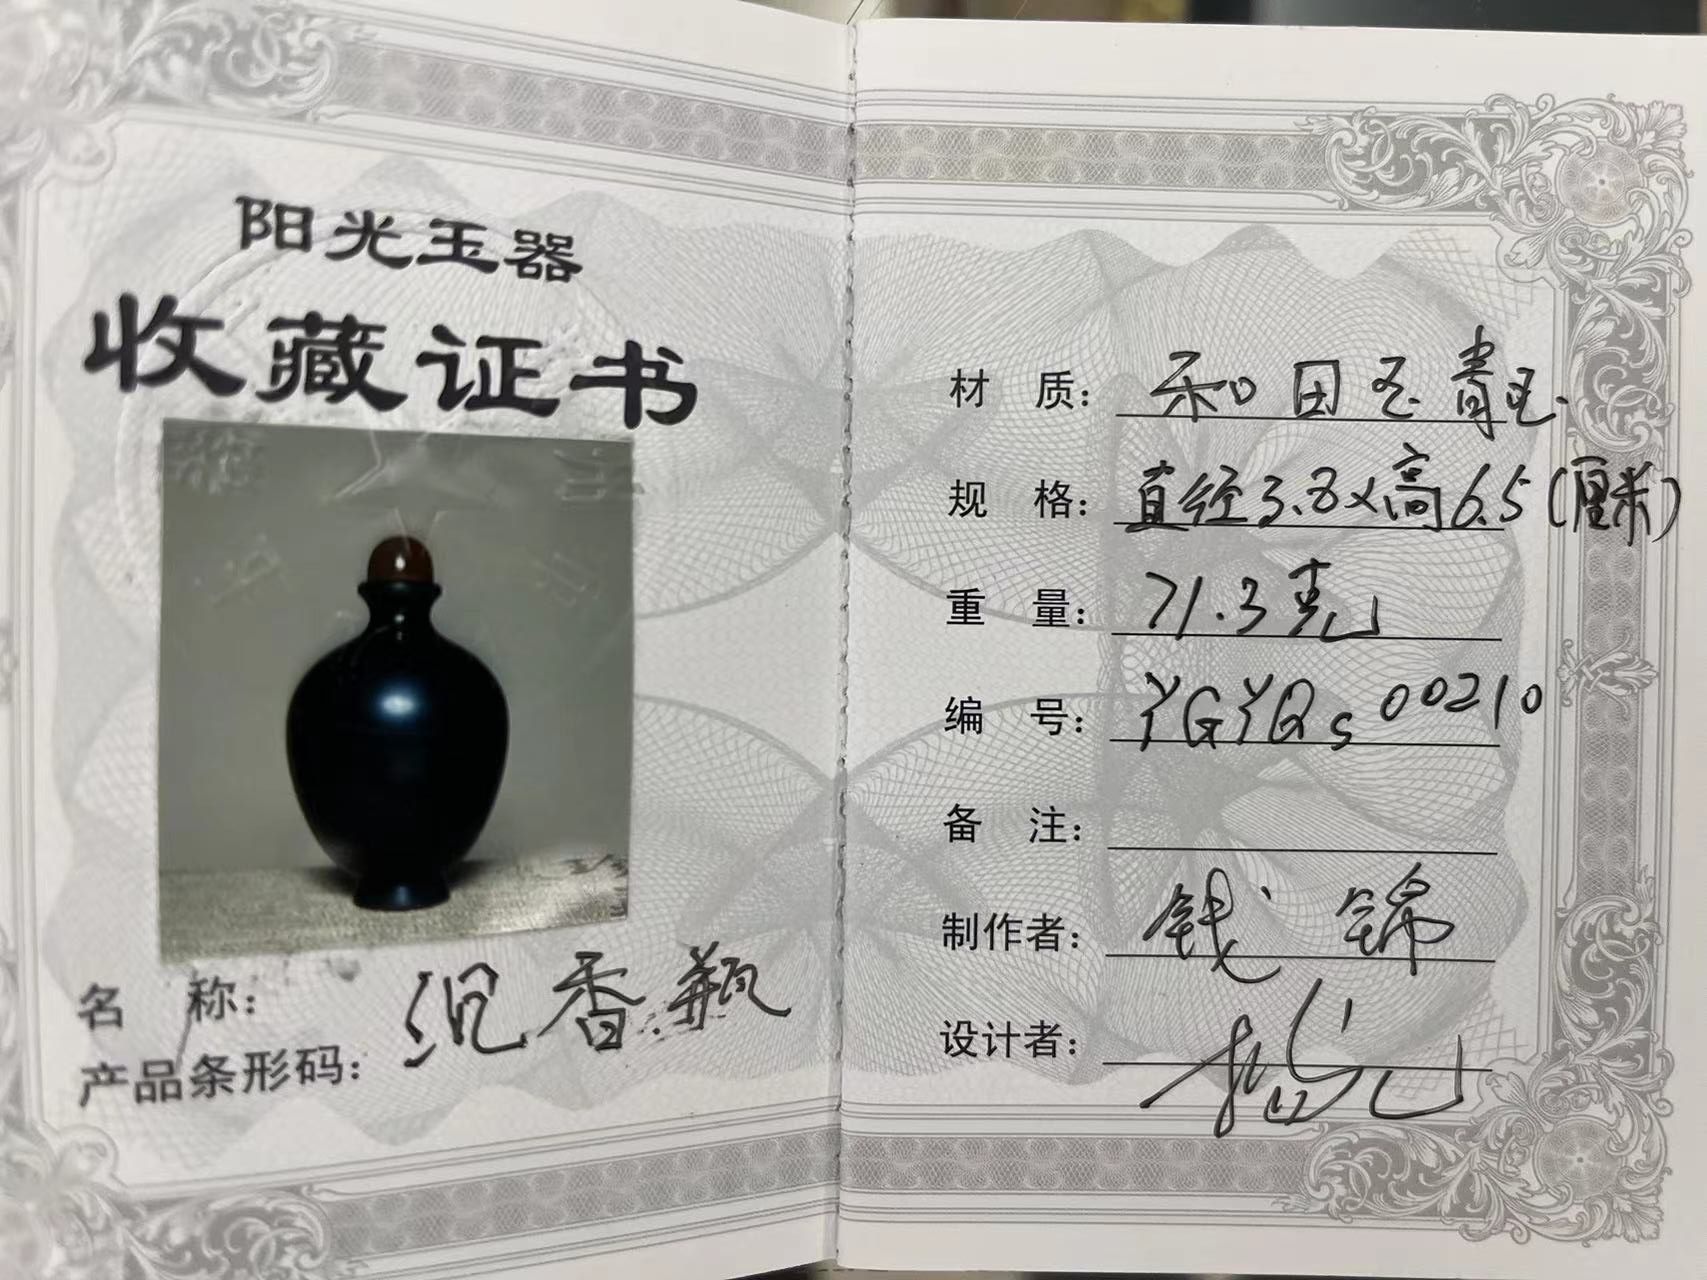 阳光玉器
收藏证书
名 称：沉香瓶
产品条形码：
材 质：和田玉青玉
规 格：直径3.8×高6.5（厘米）
重 量：71.3克
编 号：YGYQs00210
备 注：
制作者：钱锦
设计者：